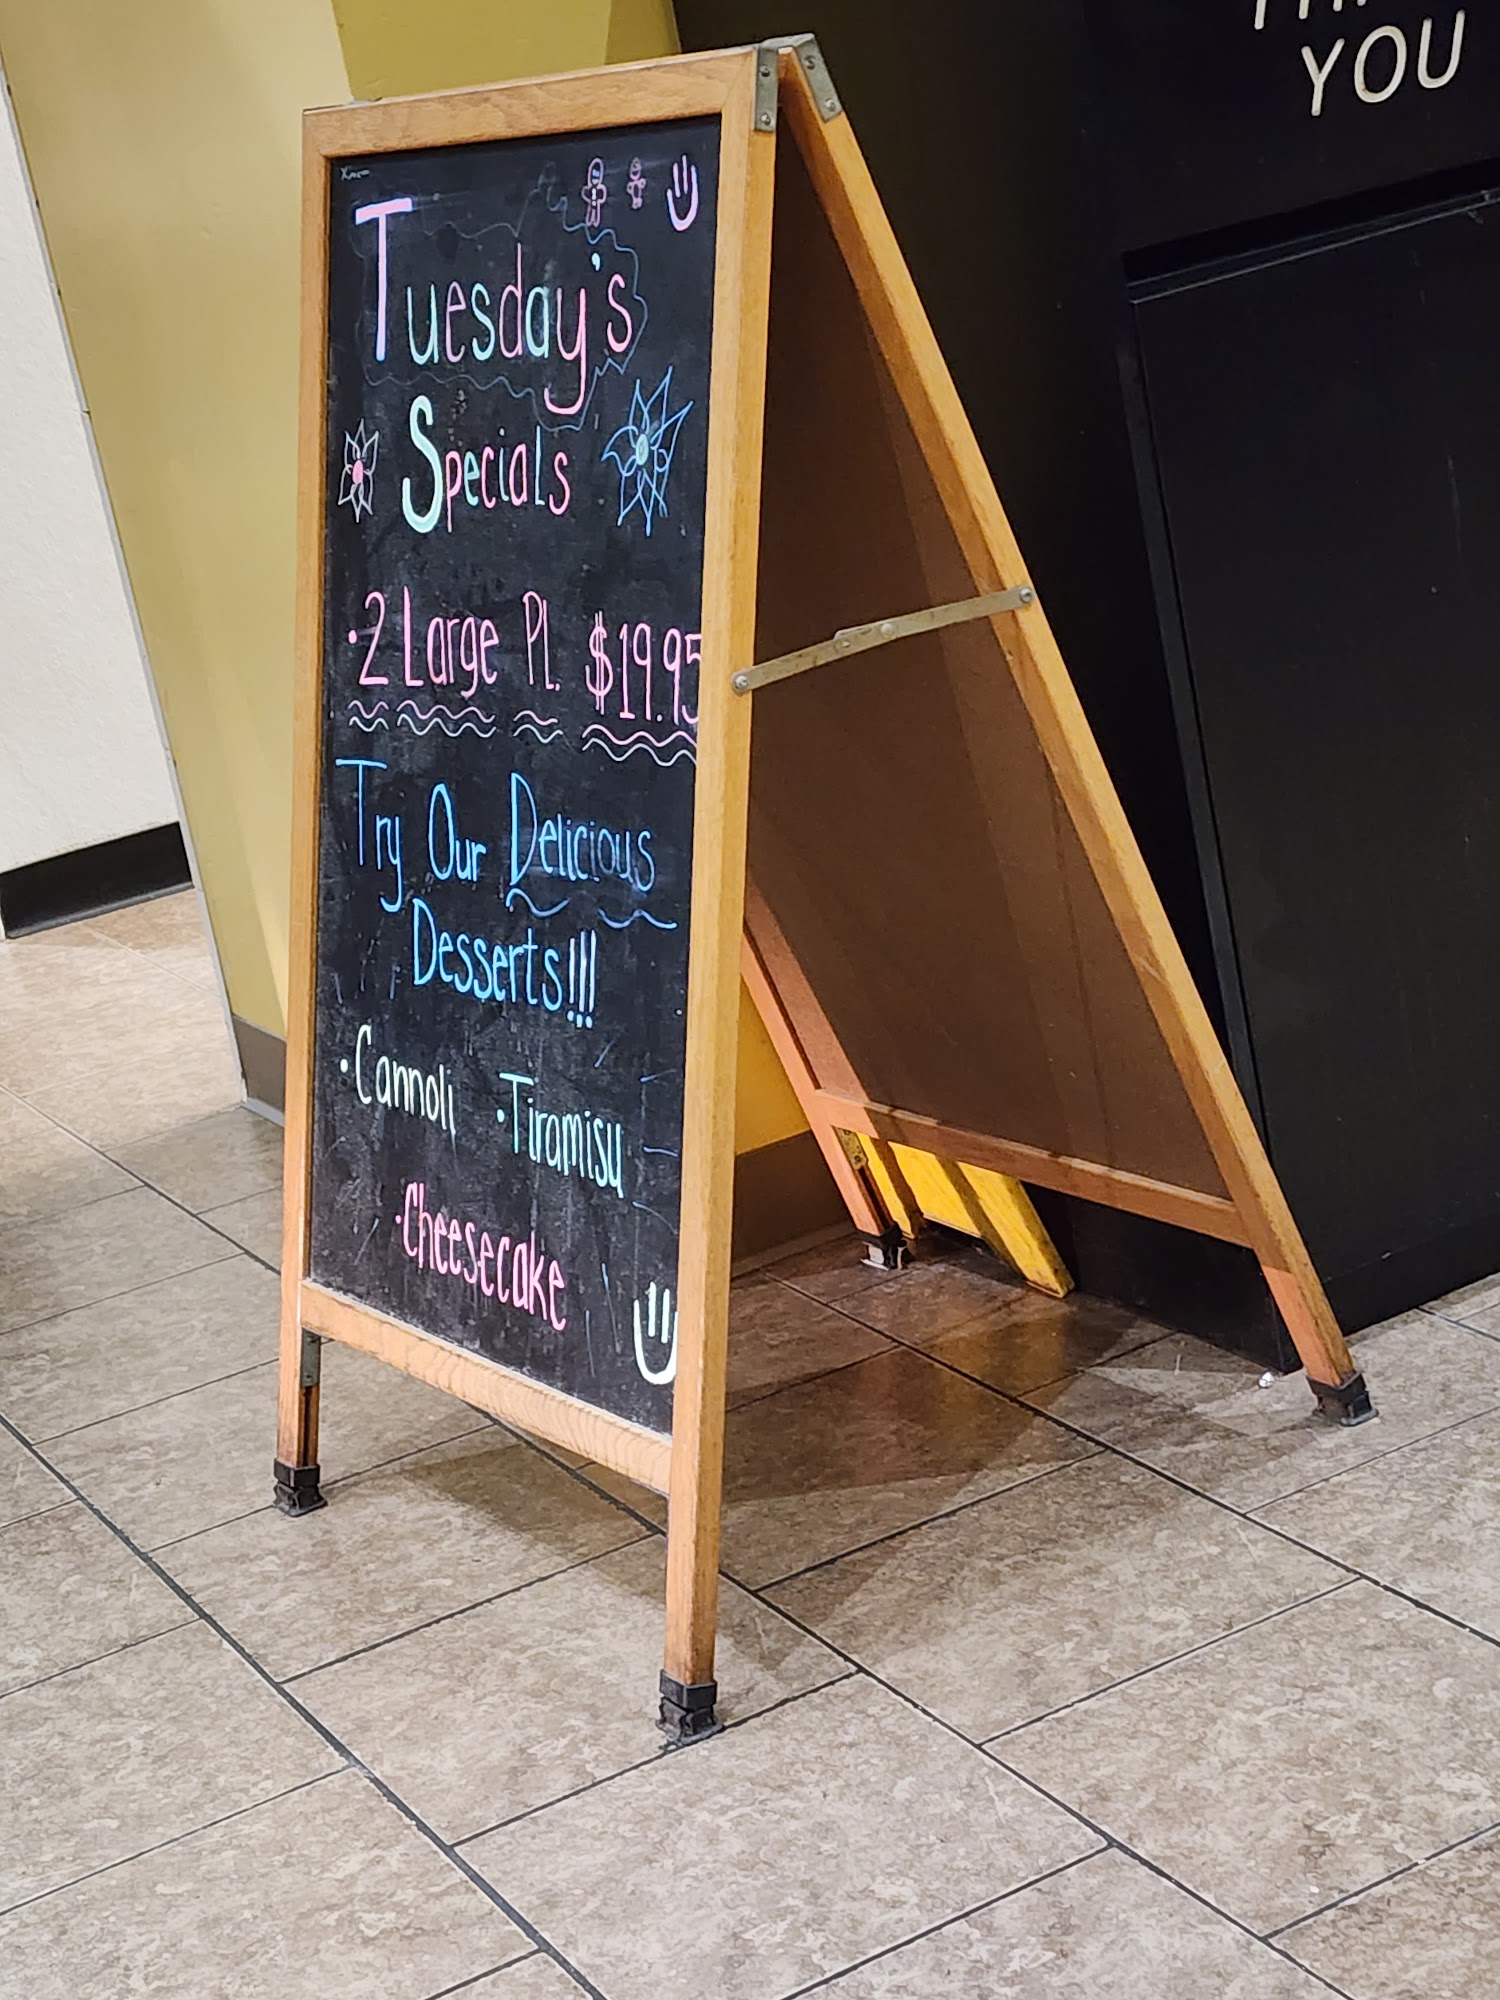 YOU
Tuesday's
Specials
• 2 Large Pl. $19.95
Try Our Delicious
Desserts!!!
• Cannoli • Tiramisu
• Cheesecake